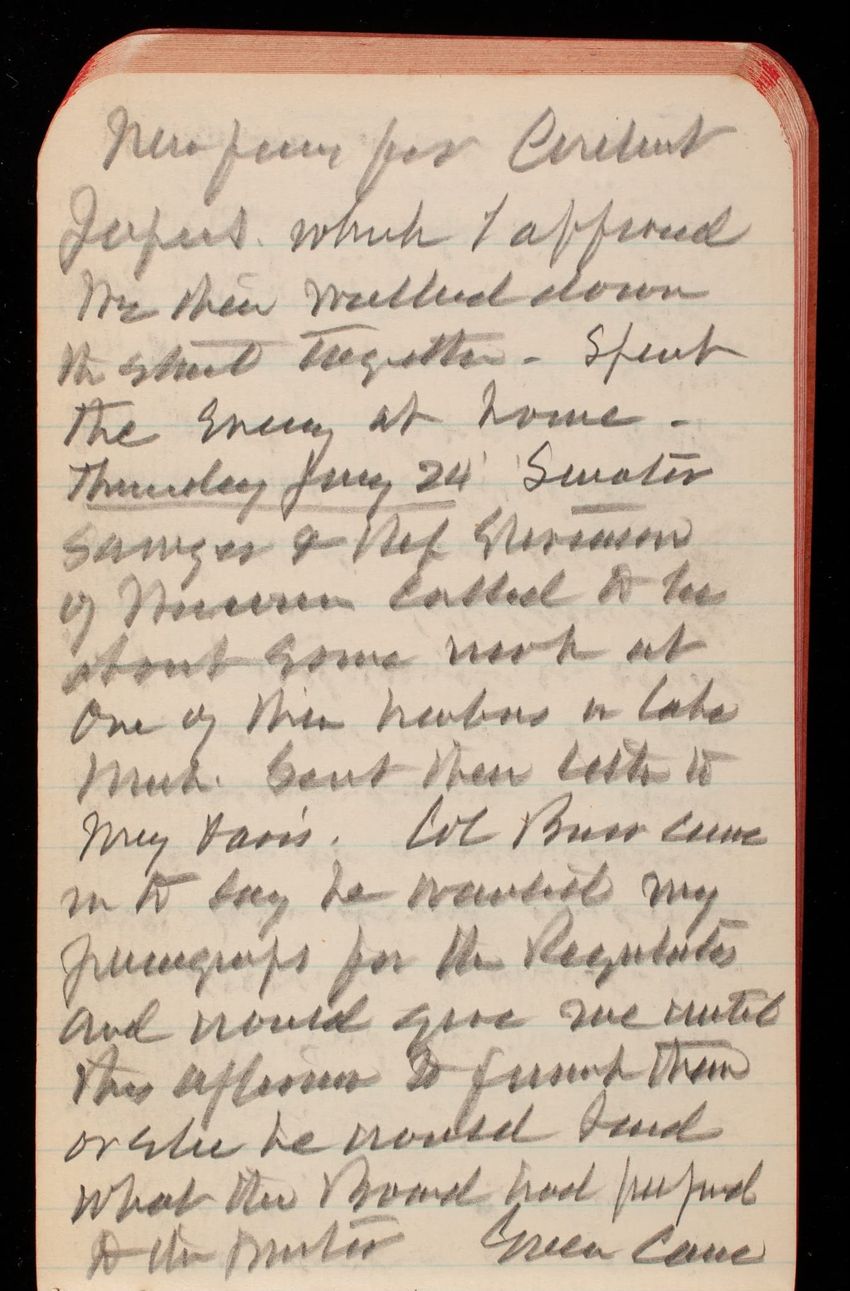 New form for
which I approved
We then walked down
the street together - Spent
the Eveng at home -
Thursday July 24 Senator
Sawyer & Rep Stevenson
of Wisconsin called to see
about some work at
One of their harbors on lake
Mich. Sent them letter to
Maj Davis. Col Buss came
in to say he wanted my
paragraphs for the Regulations
and would give me until
this afternoon to furnish them
or else he would send
what the Board had prepared
to the printer Green came